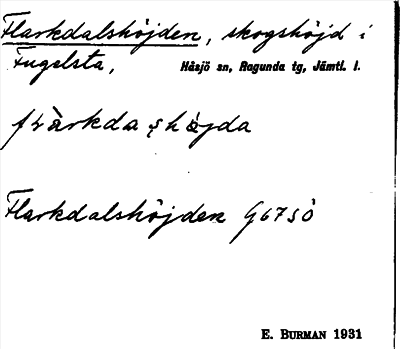 Flarkdalshöjden, skogshöjd i
Fugelsta,
Håsjö sn, Ragunda tg, Jämtl. l.
Flarkdalshöjden G67SÖ
E. BURMAN 1931